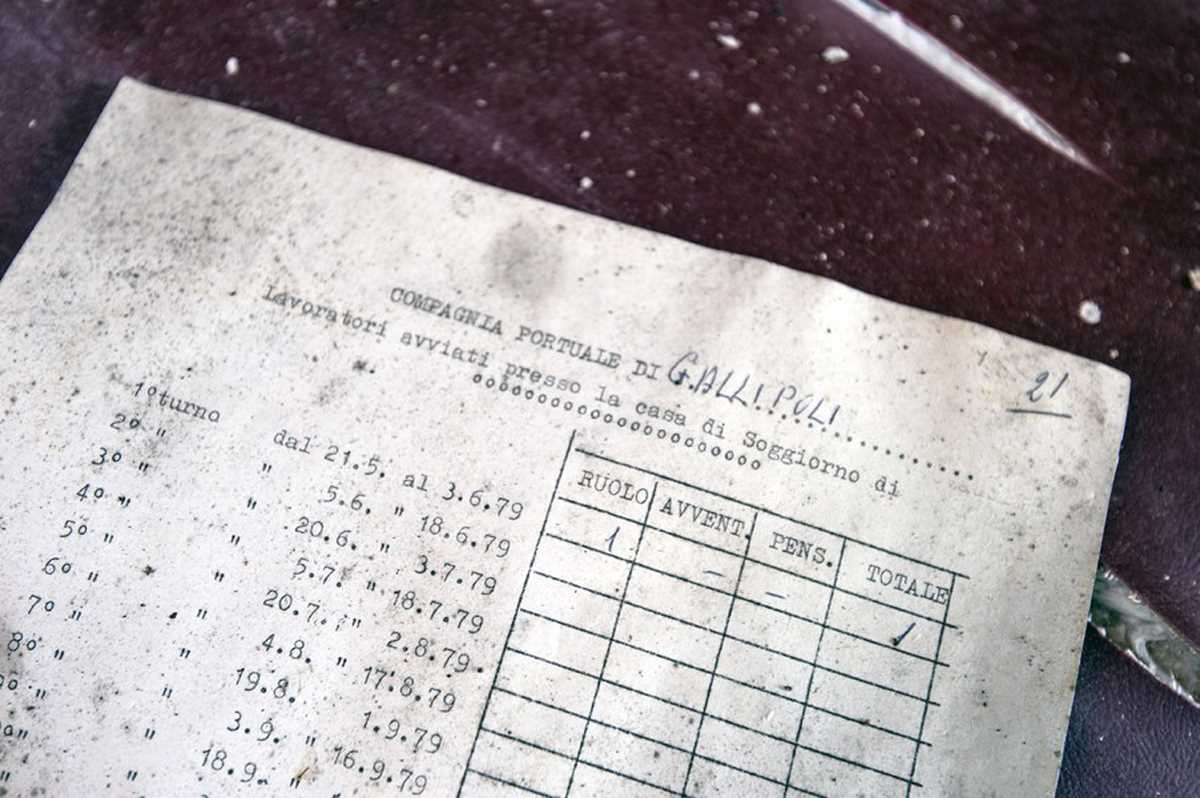 21
COMPAGNIA PORTUALE DI GALLIPOLI..............
Lavoratori avviati presso la casa di Soggiorno di
oooooooooooooooooooooo
1°turno dal 21.5. al 3.6.79
2° " " 5.6. " 18.6.79
3° " " 20.6. " 3.7.79
4° " " 5.7. " 18.7.79
5° " " 20.7. " 2.8.79.
6° " " 4.8. " 17.8.79
7° " " 19.8. 1.9.79
8° " " 3.9. " 16.9.79
9° " " 18.9. "
RUOLO AVVENT. PENS. TOTALE
1 - - 1